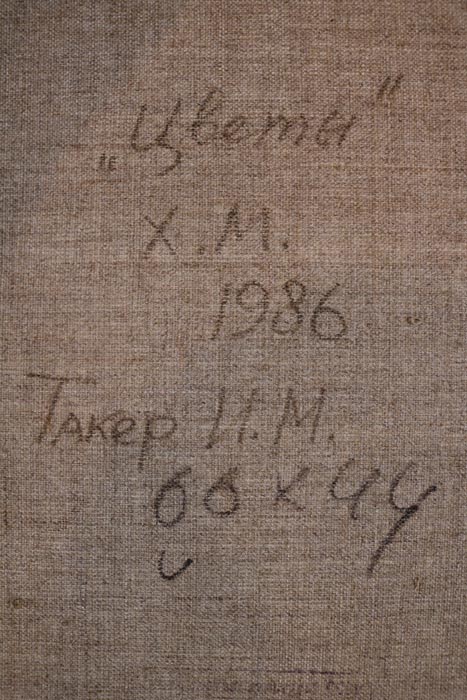 „Цветы"
Х.М.
1986
Такер И.М.
66 х 44